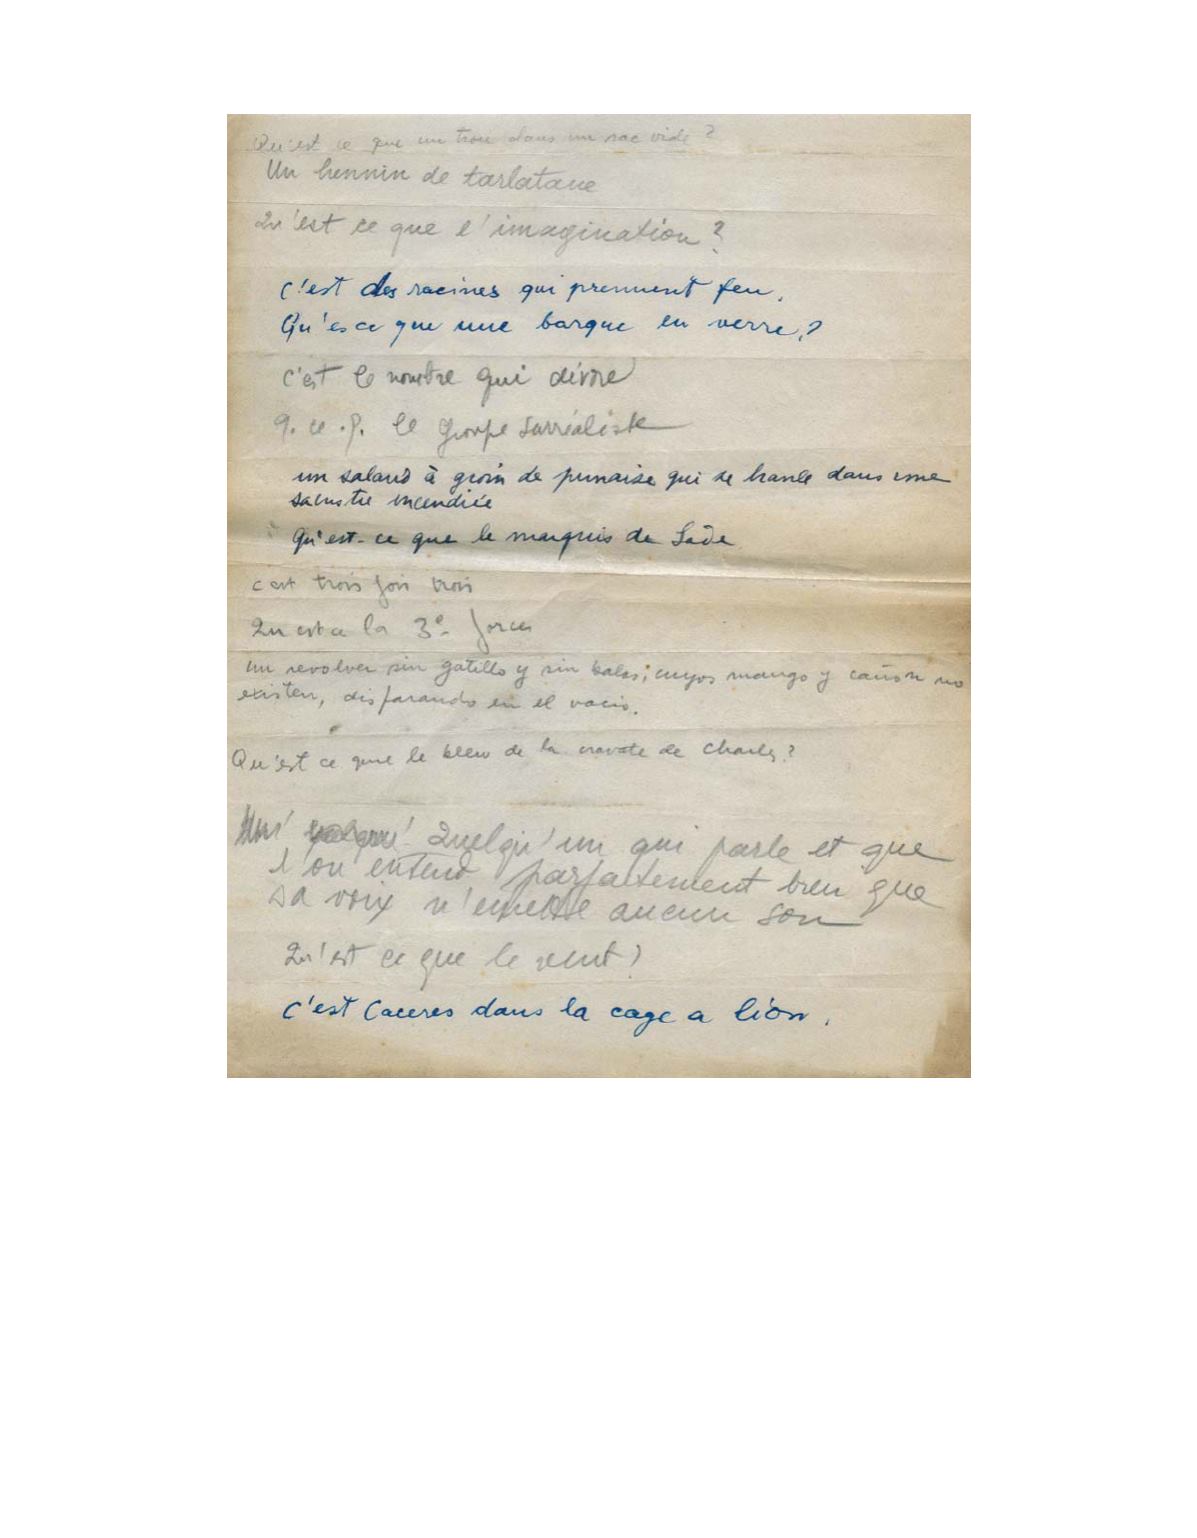 Qu'est ce que un trou dans un sac vide ?
Un hennin de tarlatane
Qu'est ce que l'imagination ?
c'est des racines qui prennent feu.
Qu'es ce que une barque en verre ?
c'est le nombre qui dévore
q. ce. q. le groupe surréaliste
un salaud à groin de punaise qui se branle dans une
sacristie incendiée
Qu'est-ce que le marquis de Sade
c'est trois fois trois
Qu'est ce la 3e force
un revolver sin gatillo y sin balas; cuyos mango y cañon no
existen, disparando en el vacio.
Qu'est ce que le bleu de la cravate de Charles ?
Quelqu'un qui parle et que
l'on entend parfaitement bien que
sa voix n'emette aucun son
Qu'est ce que le vent ?
c'est Caceres dans la cage a lion.